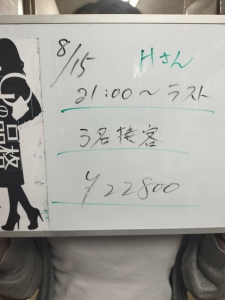 8/15 Hさん
21:00～ラスト
3名接客
¥22800
の品格